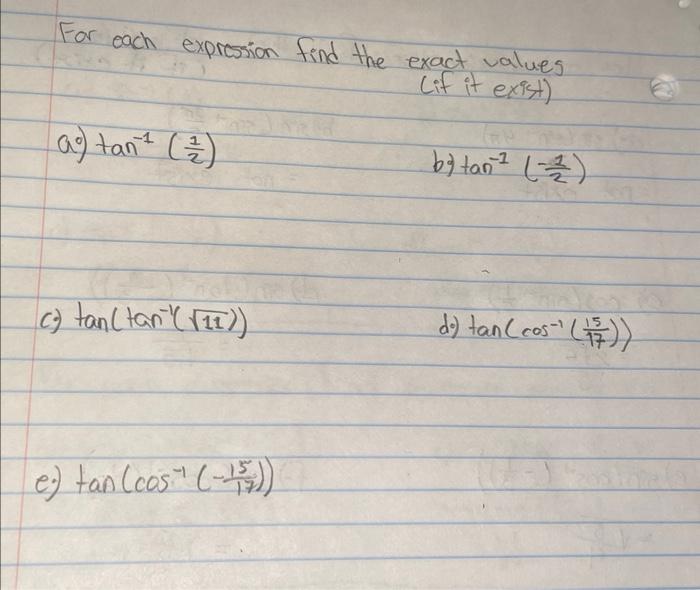 For each expression find the exact values
(if it exist)
a.) tan⁻¹ (1/2)
b.) tan⁻¹ (-1/2)
c.) tan(tan⁻¹(√11))
d.) tan(cos⁻¹(15/17))
e.) tan(cos⁻¹(-15/17))